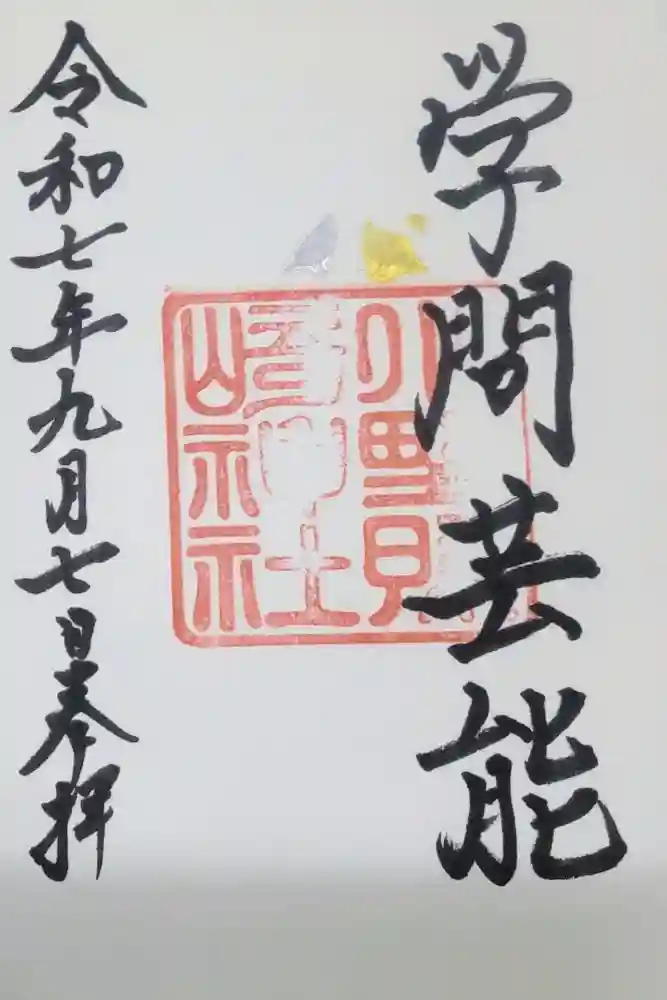 学問芸能
小野照
崎神社
令和七年九月七日奉拝